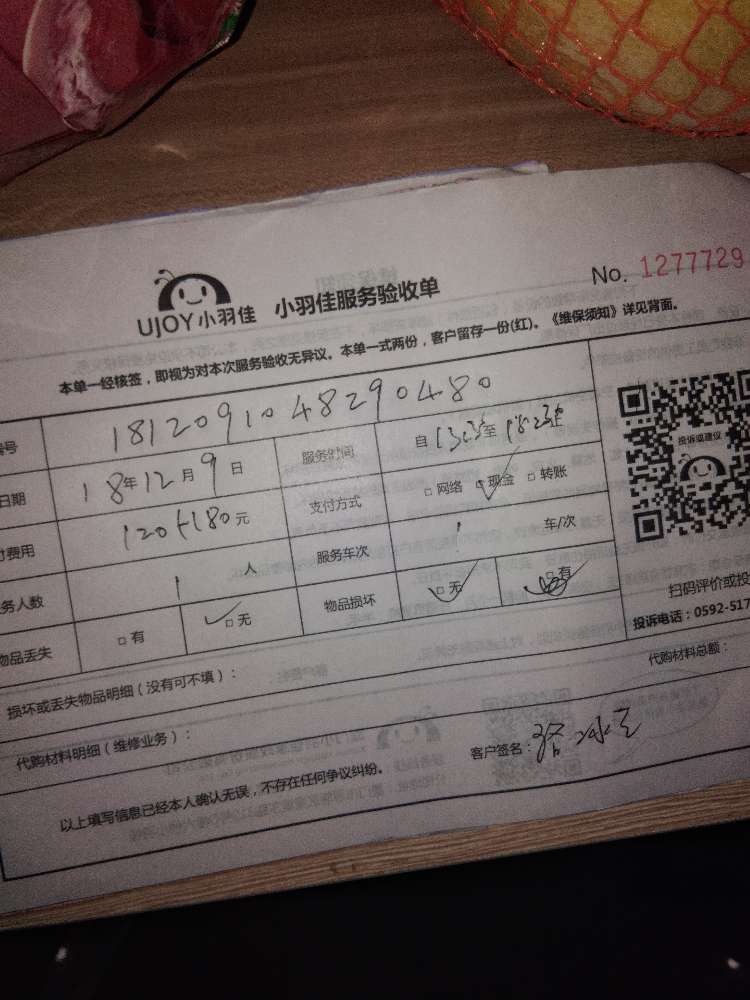 UJOY小羽佳 小羽佳服务验收单 No. 1277729
本单一经核签，即视为对本次服务验收无异议。本单一式两份，客户留存一份(红)。《维保须知》详见背面。
号 1812091048290480
日期 18年12月9日 服务时间 自 至
费用 120+180元 支付方式 □网络 □现金 □转账
务人数 1 人 服务车次 1 车/次
物品丢失 □有 □无 物品损坏 □无 □有
投诉或建议
扫码评价或投
投诉电话：0592-517
损坏或丢失物品明细（没有可不填）：
代购材料明细（维修业务）： 代购材料总额：
以上填写信息已经本人确认无误，不存在任何争议纠纷。 客户签名：